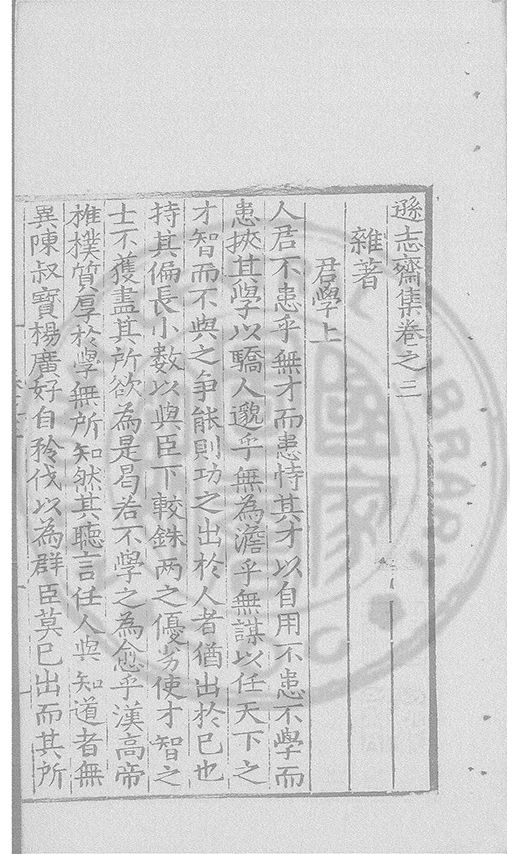 遜志齋集卷之三
雜著
君學上
人君不患乎無才而患恃其才以自用不患不學而
患挾其學以驕人邈乎無為澹乎無謀以任天下之
才智而不與之争能則功之出於人者猶出於已也
持其偏長小數以與臣下較銖两之優劣使才智之
士不獲盡其所欲為是曷若不學之為愈乎漢高帝
椎樸質厚於學無所知然其聽言任人與知道者無
異陳叔寶楊廣好自矜伐以為群臣莫已出而其所
LIBRARY
國家